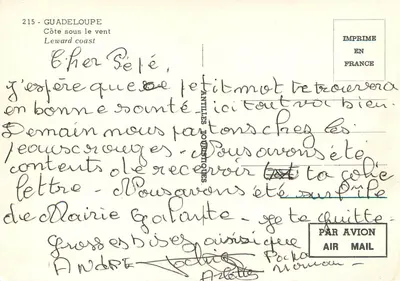 215 - GUADELOUPE
Côte sous le vent
Leward coast
IMPRIMÉ
EN
FRANCE
Cher Pépé,
j'espère que ce petit mot te trouvera
en bonne santé - ici tout va bien.
Demain nous partons chez les
peaux rouges - Nous avons été
contents de recevoir ta jolie
lettre - Nous avons été sur l'île
de Marie Galante - je te quitte.
Grosses bises ainsi que
ANDRE
Papa
Maman
ANTILLES
PAR AVION
AIR MAIL